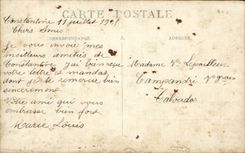 CARTE POSTALE
Constantine 18 juillet
Chers Amis
CORRESPONDANCE
ADRESSE
Je vous envoie mes
meilleurs amitiés de
Constantine j'ai bien reçu
votre lettre et mandat
dont je te remercie bien
sincèrement
Votre ami qui vous
embrasse bien fort
Marie Louis
Madame Vve
Calvados